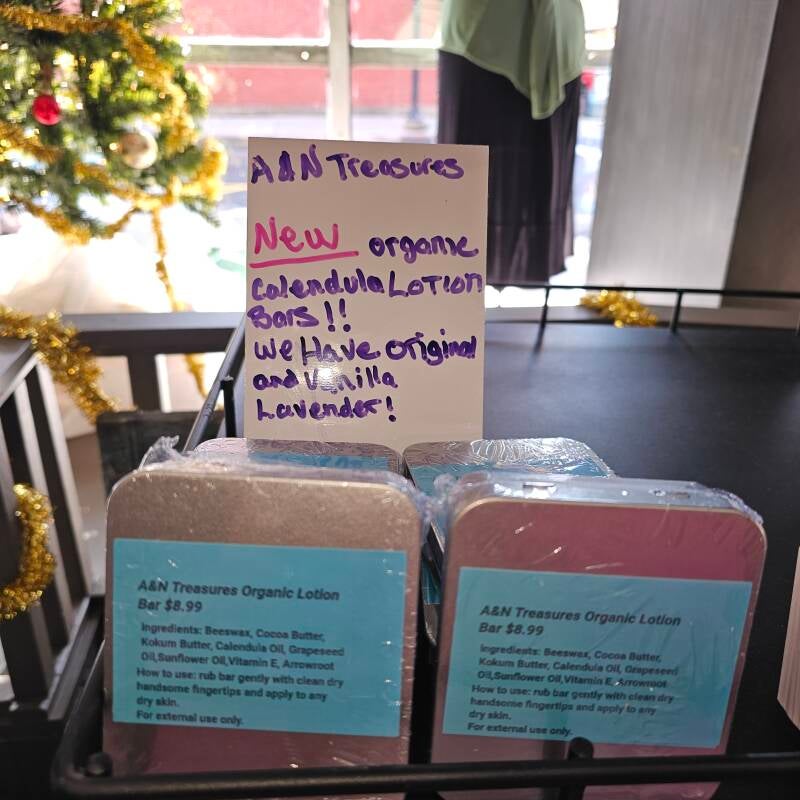 A&N Treasures
New organic
Calendula Lotion
Bars!!
We Have original
and Vanilla
Lavender!
A&N Treasures Organic Lotion
Bar $8.99
Ingredients: Beeswax, Cocoa Butter,
Kokum Butter, Calendula Oil, Grapeseed
Oil,Sunflower Oil,Vitamin E, Arrowroot
How to use: rub bar gently with clean dry
handsome fingertips and apply to any
dry skin.
For external use only.
A&N Treasures Organic Lotion
Bar $8.99
Ingredients: Beeswax, Cocoa Butter,
Kokum Butter, Calendula Oil, Grapeseed
Oil,Sunflower Oil,Vitamin E, Arrowroot
How to use: rub bar gently with clean dry
handsome fingertips and apply to any
dry skin.
For external use only.